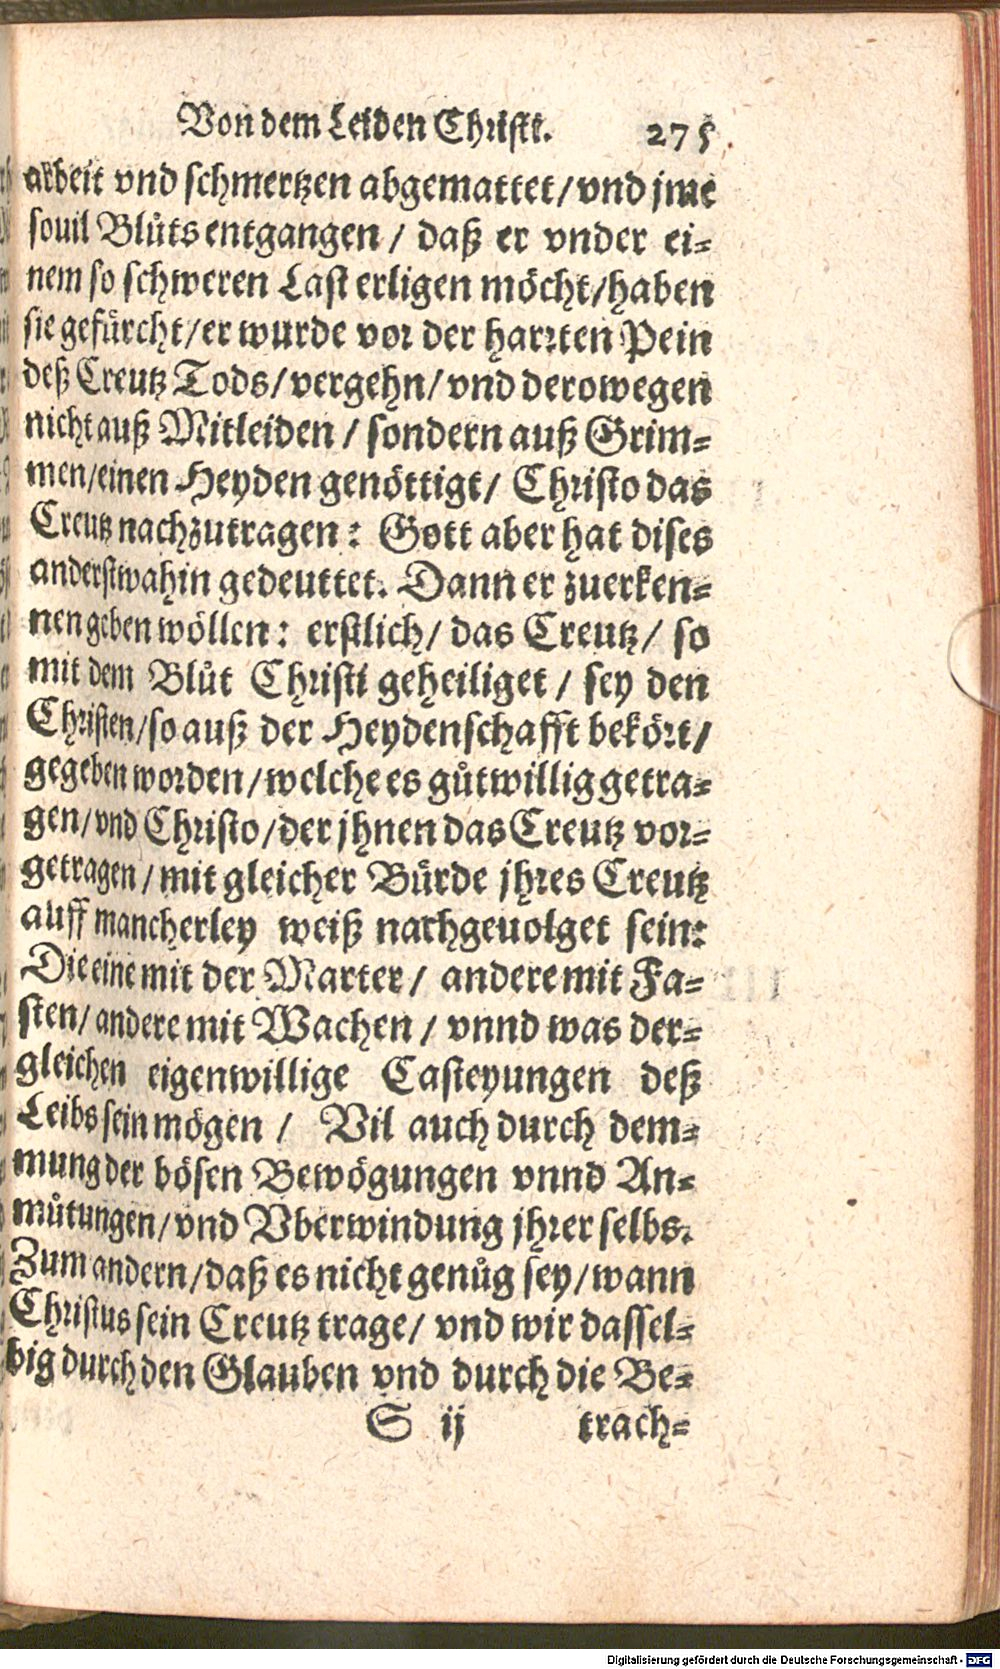 Von dem Leiden Christi. 275
arbeit vnd schmertzen abgemattet/ vnd jme
souil Blůts entgangen / daß er vnder ei-
nem so schweren Last erligen möcht/ haben
sie gefürcht/ er wurde vor der harrten Pein
deß Creutz Tods/ vergehn/ vnd derowegen
nicht auß Mitleiden / sondern auß Grim-
men/ einen Heyden genöttigt/ Christo das
Creutz nachzutragen: Gott aber hat dises
anderstwahin gedeuttet. Dann er zuerken-
nen geben wöllen: erstlich/ das Creutz/ so
mit dem Blůt Christi geheiliget / sey den
Christen/ so auß der Heydenschafft bekört/
gegeben worden/ welche es gůtwillig getra-
gen/ vnd Christo/ der jhnen das Creutz vor-
getragen/ mit gleicher Bürde jhres Creutz
auff mancherley weiß nachgeuolget sein:
Die eine mit der Marter/ andere mit Fa-
sten/ andere mit Wachen / vnnd was der-
gleichen eigenwillige Casteyungen deß
Leibs sein mögen / Vil auch durch dem-
mung der bösen Bewögungen vnnd An-
můtungen/ vnd Vberwindung jhrer selbs.
Zum andern/ daß es nicht genůg sey/ wann
Christus sein Creutz trage/ vnd wir dassel-
big durch den Glauben vnd durch die Be-
S ij trach-
Digitalisierung gefördert durch die Deutsche Forschungsgemeinschaft - DFG